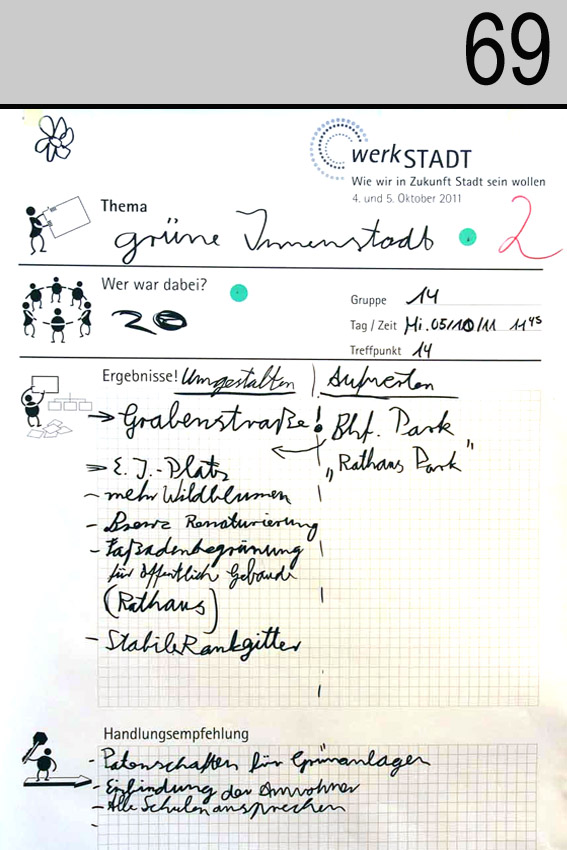 69
werkSTADT
Wie wir in Zukunft Stadt sein wollen
4. und 5. Oktober 2011
Thema
grüne Innenstadt
2
Wer war dabei?
20
Gruppe 14
Tag / Zeit Mi. 05/10/11 11 45
Treffpunkt 14
Ergebnisse! Umgestalten | Aufwerten
→ Grabenstraße! Bhf. Park
"Rathaus Park"
→ E. J.-Platz
- mehr Wildblumen
- Brenz Renaturierung
- Faßadenbegrünung
für öffentlich Gebäude
(Rathaus)
- Stabile Rankgitter
Handlungsempfehlung
- Patenschaften für Grünanlagen
- Einbindung der Anwohner
- Alle Schulen ansprechen
-